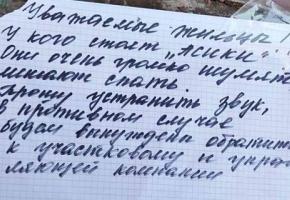 Уважаемые жильцы!
У кого стоят „Асики"
Они очень громко шумят
мешают спать
Прошу устранить звук,
в противном случае
будем вынуждены обратить
к участковому и упра
ляющей компании